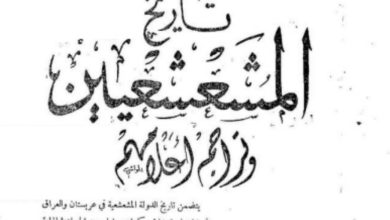 تاريخ
المشعشعيين
وتراجم أعلامهم
يتضمن تاريخ الدولة المشعشعية في عربستان والعراق